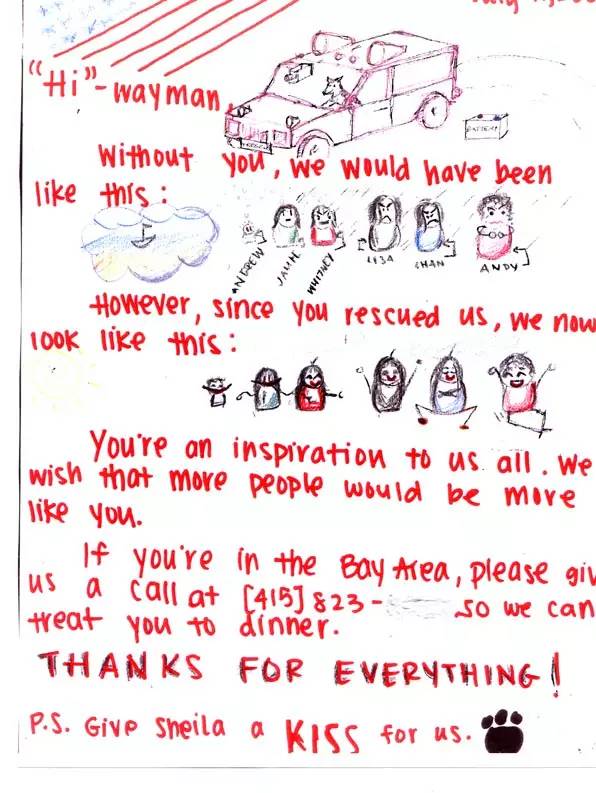 "Hi"-wayman,
BATTERY
Without you, we would have been
like this:
ANDREW JAMIE WHITNEY LISA CHAN ANDY
However, since you rescued us, we now
look like this:
You're an inspiration to us all. We
wish that more people would be more
like you.
If you're in the Bay Area, please giv
us a call at [415] 823- so we can
treat you to dinner.
THANKS FOR EVERYTHING!
P.S. Give Sheila a KISS for us.